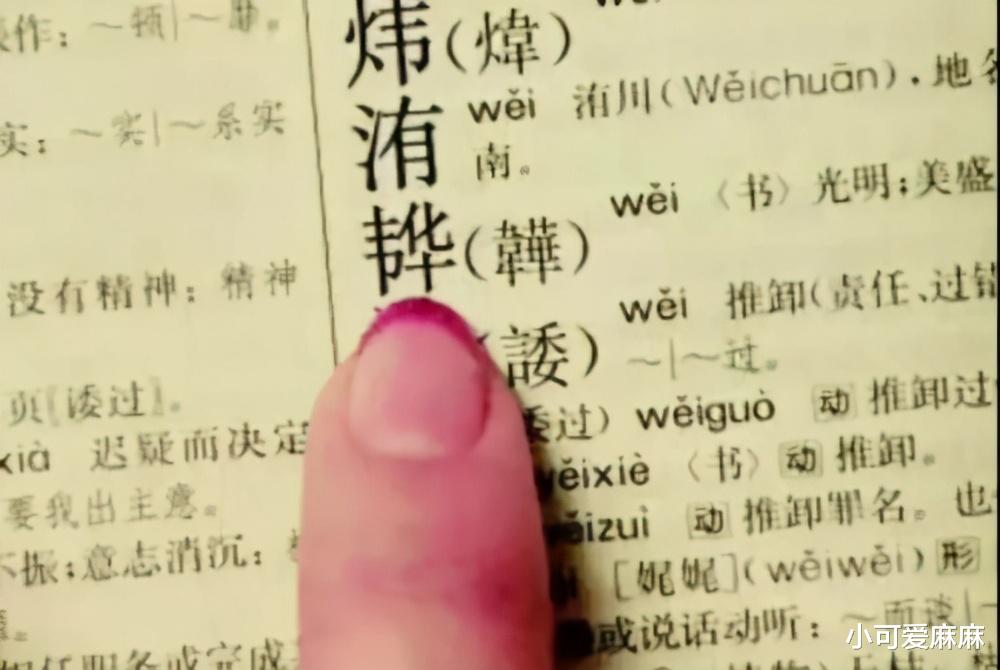 作：～顿|～靡。
实：～实|～系实
没有精神：精神
页〖诿过〗。
xià 迟疑而决定
要我出主意。
不振；意志消沉：
炜（煒）
洧 wěi 洧川（Wěichuān），地名
南。
韡（韡） wěi 〈书〉光明；美盛
（諉） wěi 推卸（责任、过错
～|～过。
委过）wěiguò 动 推卸过
wěixiè 〈书〉动 推卸。
wěizuì 动 推卸罪名。也
[娓娓]（wěiwěi）形
或说话动听：～而谈|～
小可爱麻麻